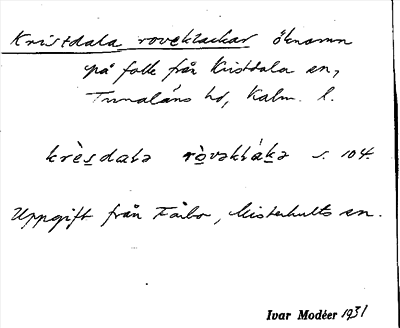 Kristdala roveklackar öknamn
på folk från Kristdala sn,
Tunaläns hd, Kalm. l.
krèsdala ròvəkláka s. 104.
Uppgift från Fårbo, Misterhults sn.
Ivar Modéer 1931